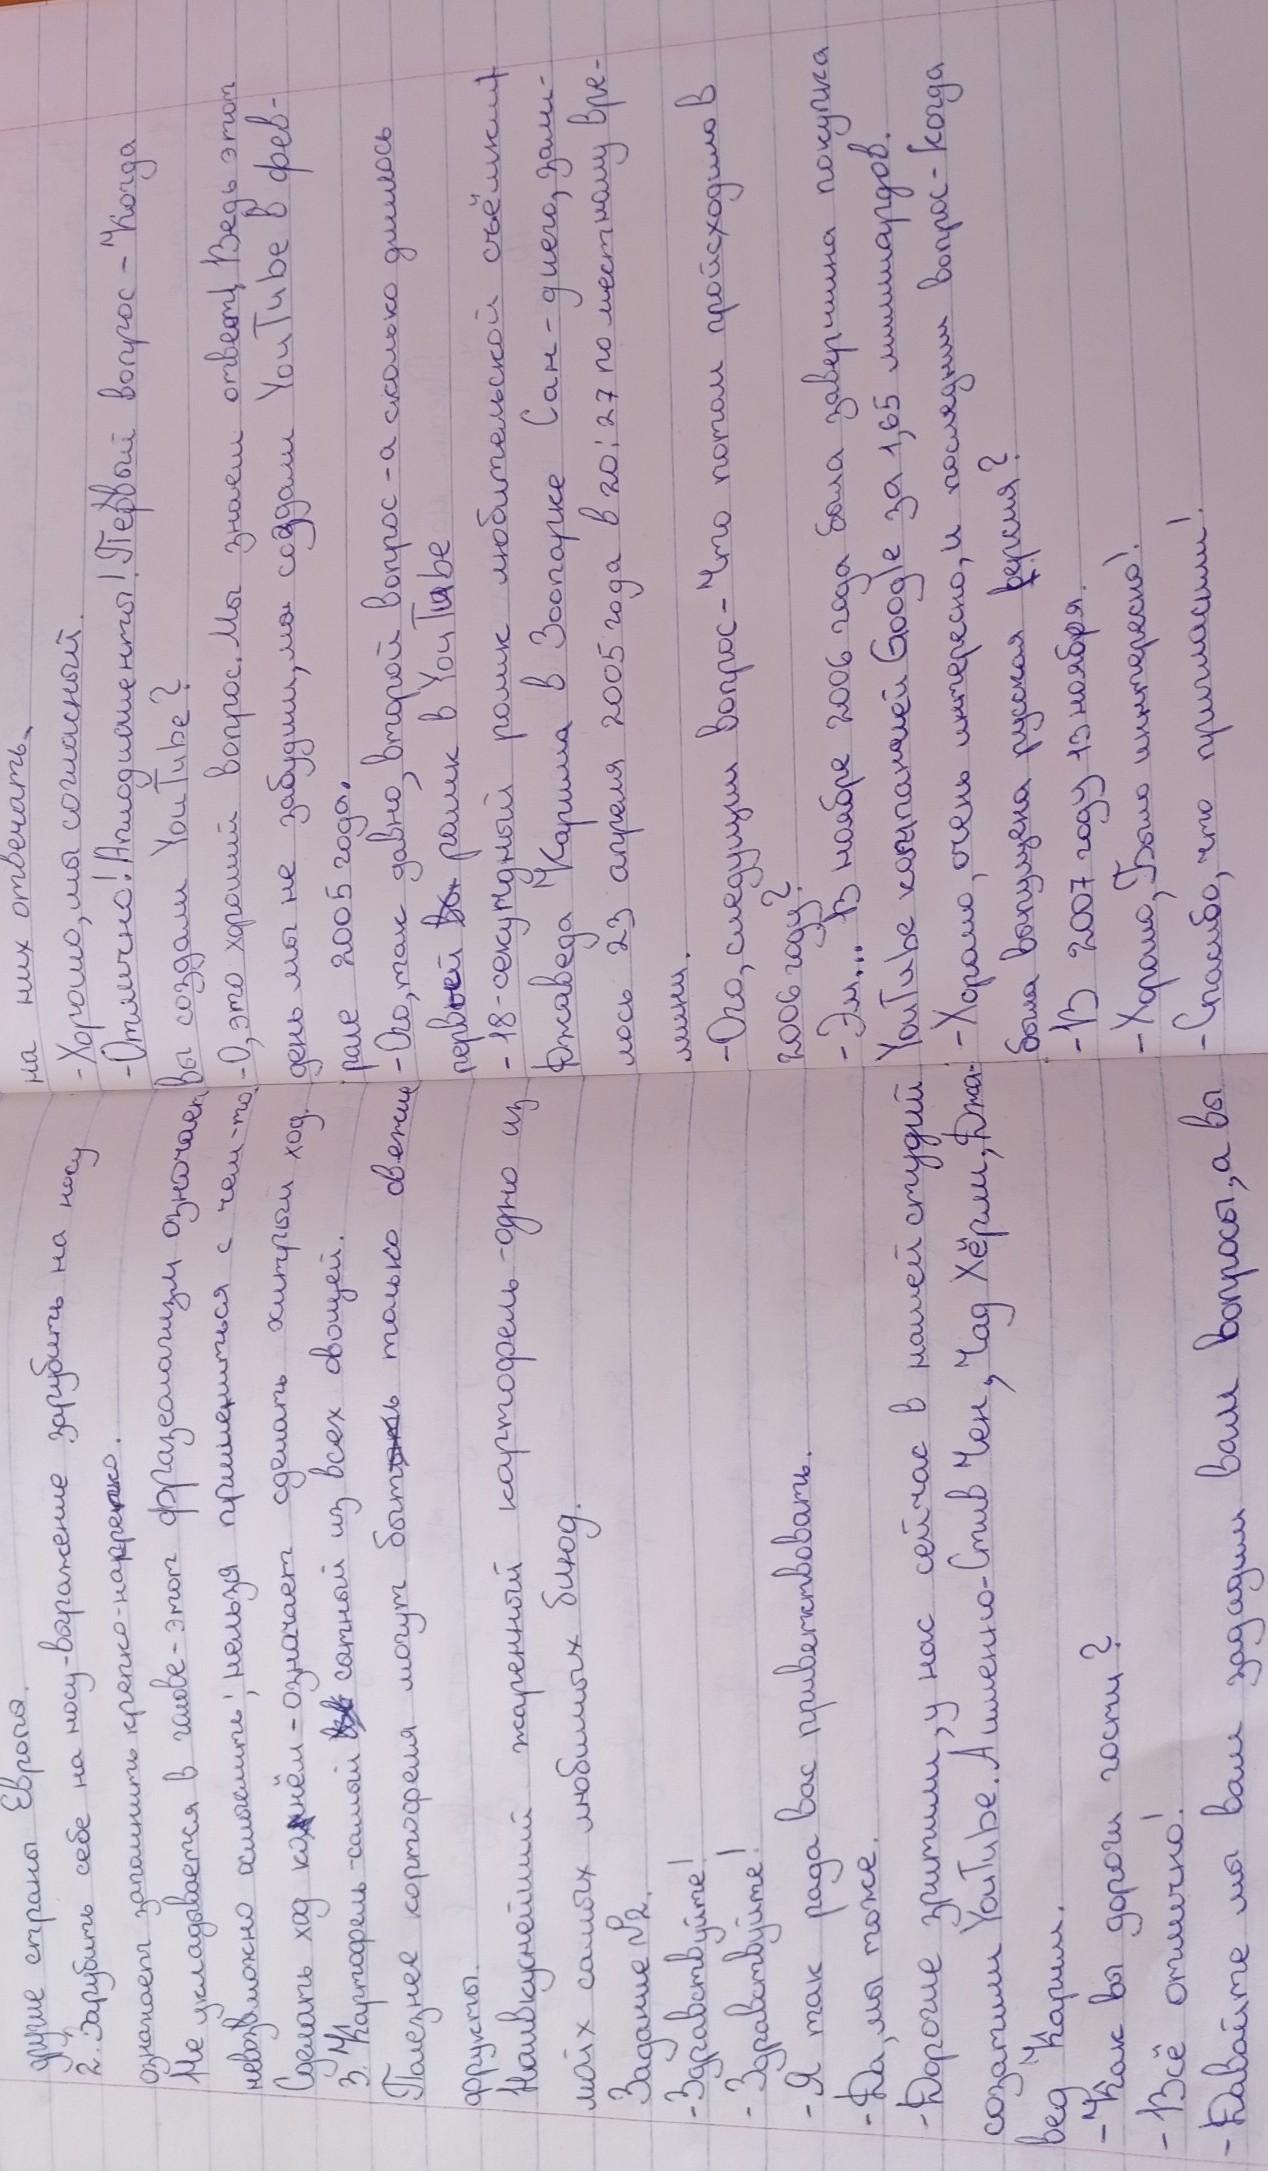 другие страны Европа.
2. Зарубить себе на носу-выражение зарубить на носу
означает запомнить крепко-накрепко.
Не укладывается в голове-этот фразеологизм означает
невозможно осмыслить; нельзя примениться с чем-то.
Сделать ход конём-означает сделать хитрый ход.
3. Картофель-самый сатный из всех овощей.
Полезнее картофеля могут быть только свежие
фрукты.
Наивкуснейший жаренный картофель-одно из
моих самых любимых блюд.
Задание №2.
-Здравствуйте!
- Здравствуйте!
- Я так рада вас приветствовать.
-Да, мы тоже.
-Дорогие зрители, у нас сейчас в нашей студий
созатили YouTube. А именно-Стив Чен, Чад Хёрли, Джа-
вед Карим.
-Как вы дороги гости?
-Всё отлично!
-Давайте мы вам зададим вам вопросы, а вы
на них отвечать.
-Хорошо, мы согласный.
-Отлично! Аплодименты! Первый вопрос-Когда
вы создали YouTube?
-О, это хороший вопрос. Мы знаем ответ! Ведь этот
день мы не забудим, мы создали YouTube в фев-
рале 2005 года.
-Ого, так давно, второй вопрос-а сколько длилось
первый ролик в YouTube
-18-секундный ролик любительской съёмки
Джаведа Карима в Зоопарке Сан-диего, зали-
лось 23 апреля 2005 года в 20:27 по местному вре-
мини.
-Ого, следущий вопрос-Что потом происходило в
2006 году?
-Эм... В ноябре 2006 года была завершина покупка
YouTube компанией Google за 1,65 миллиардов.
-Хорошо, очень интересно, и последний вопрос-Когда
была выпущена руская версия?
-В 2007 году 13 ноября.
-Хорошо, Было интересно!
-Спасибо, что пригласили!